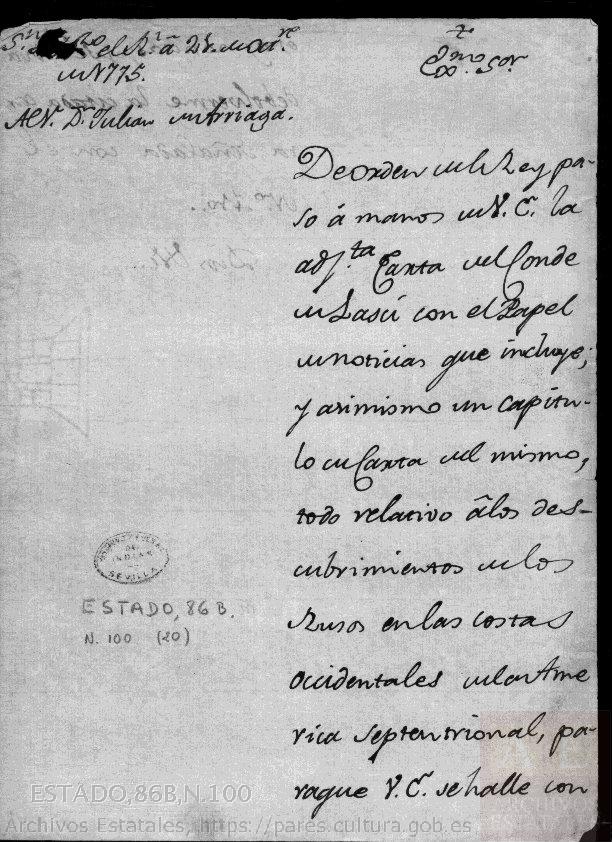 el R.l â 21. de Oct.re
de 1775.
Al S.r D.n Julian de Arriaga.
Ex.mo Sor.
De orden del Rey pa-
so â manos de V. E. la
adj.ta Carta del Conde
de Lasci con el Papel
de noticias que incluye;
y asimismo un capitu-
lo de Carta del mismo,
todo relativo âlos des-
cubrimientos de los
Rusos en las costas
occidentales de la Ame
rica septentrional, pa-
raque V. E. se halle con
INDIAS
SEVILLA
ESTADO, 86 B.
N. 100 (20)
ESTADO,86B,N.100
Archivos Estatales, https://pares.cultura.gob.es